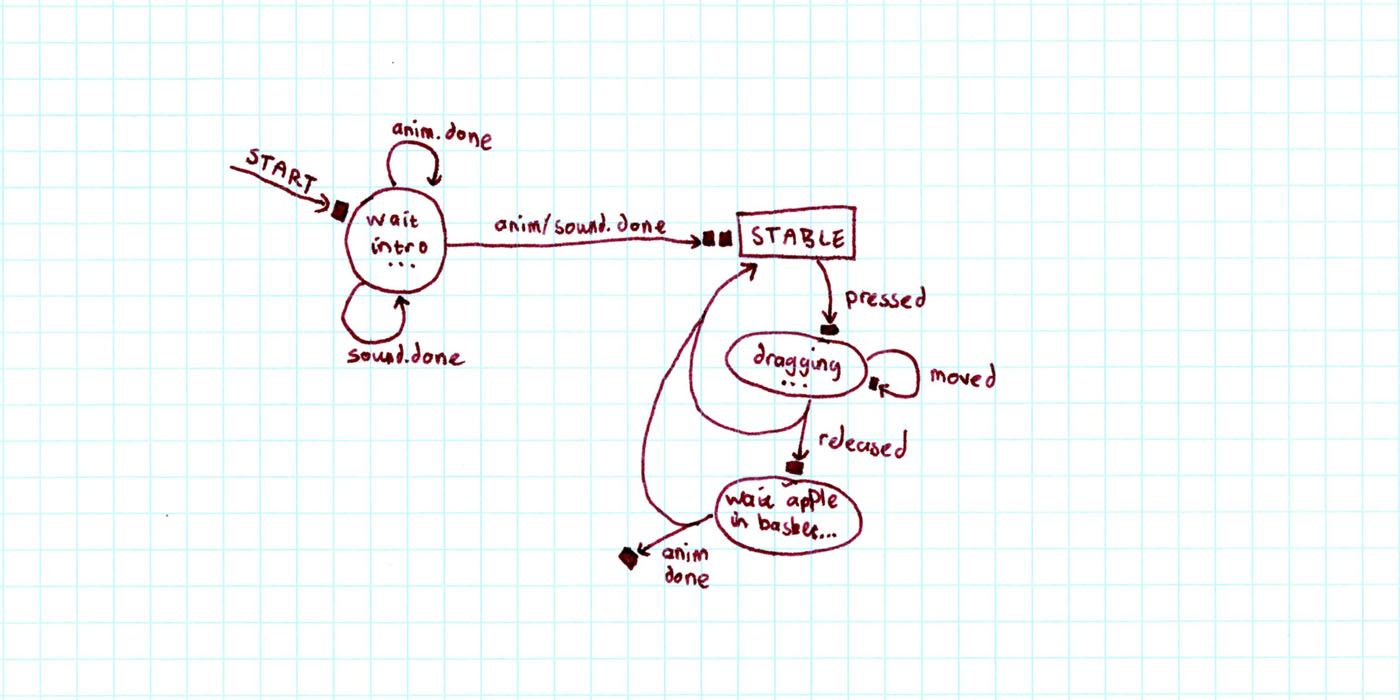 anim.done
START
wait
intro
...
anim/sound.done
STABLE
sound.done
pressed
dragging
...
moved
released
wait apple
in basket...
anim
done